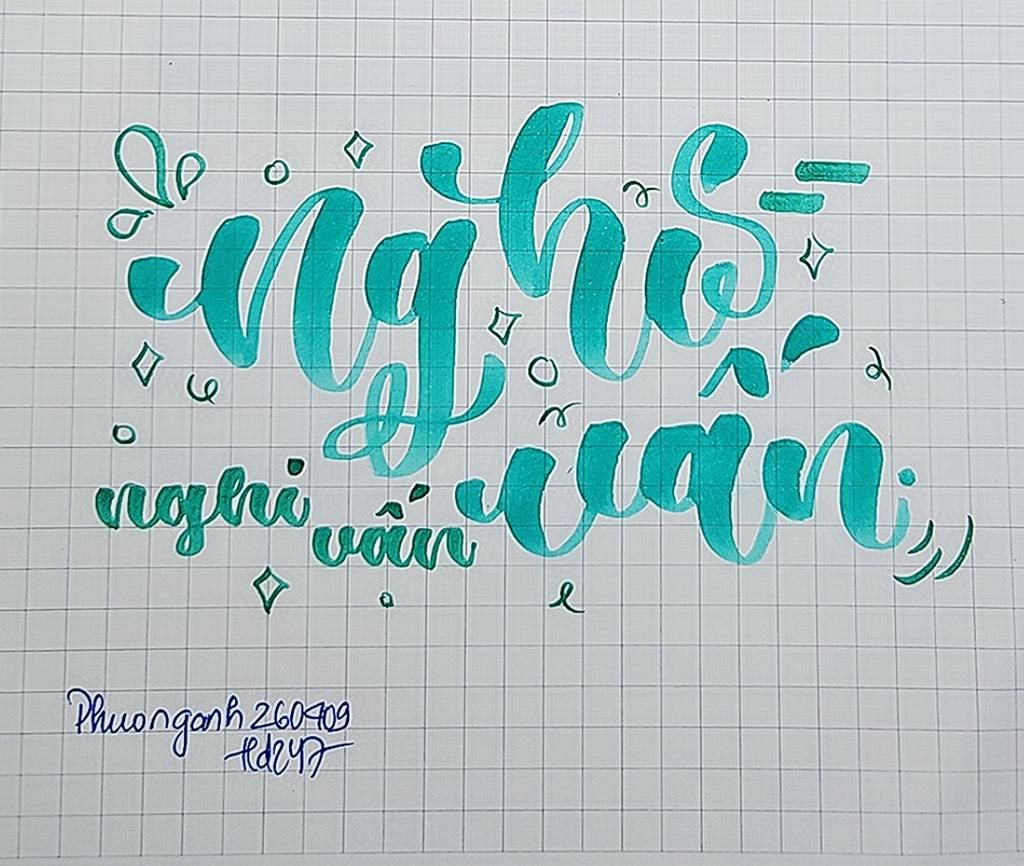 nghi
vấn
nghi
vấn
Phuonganh260409
Hd247